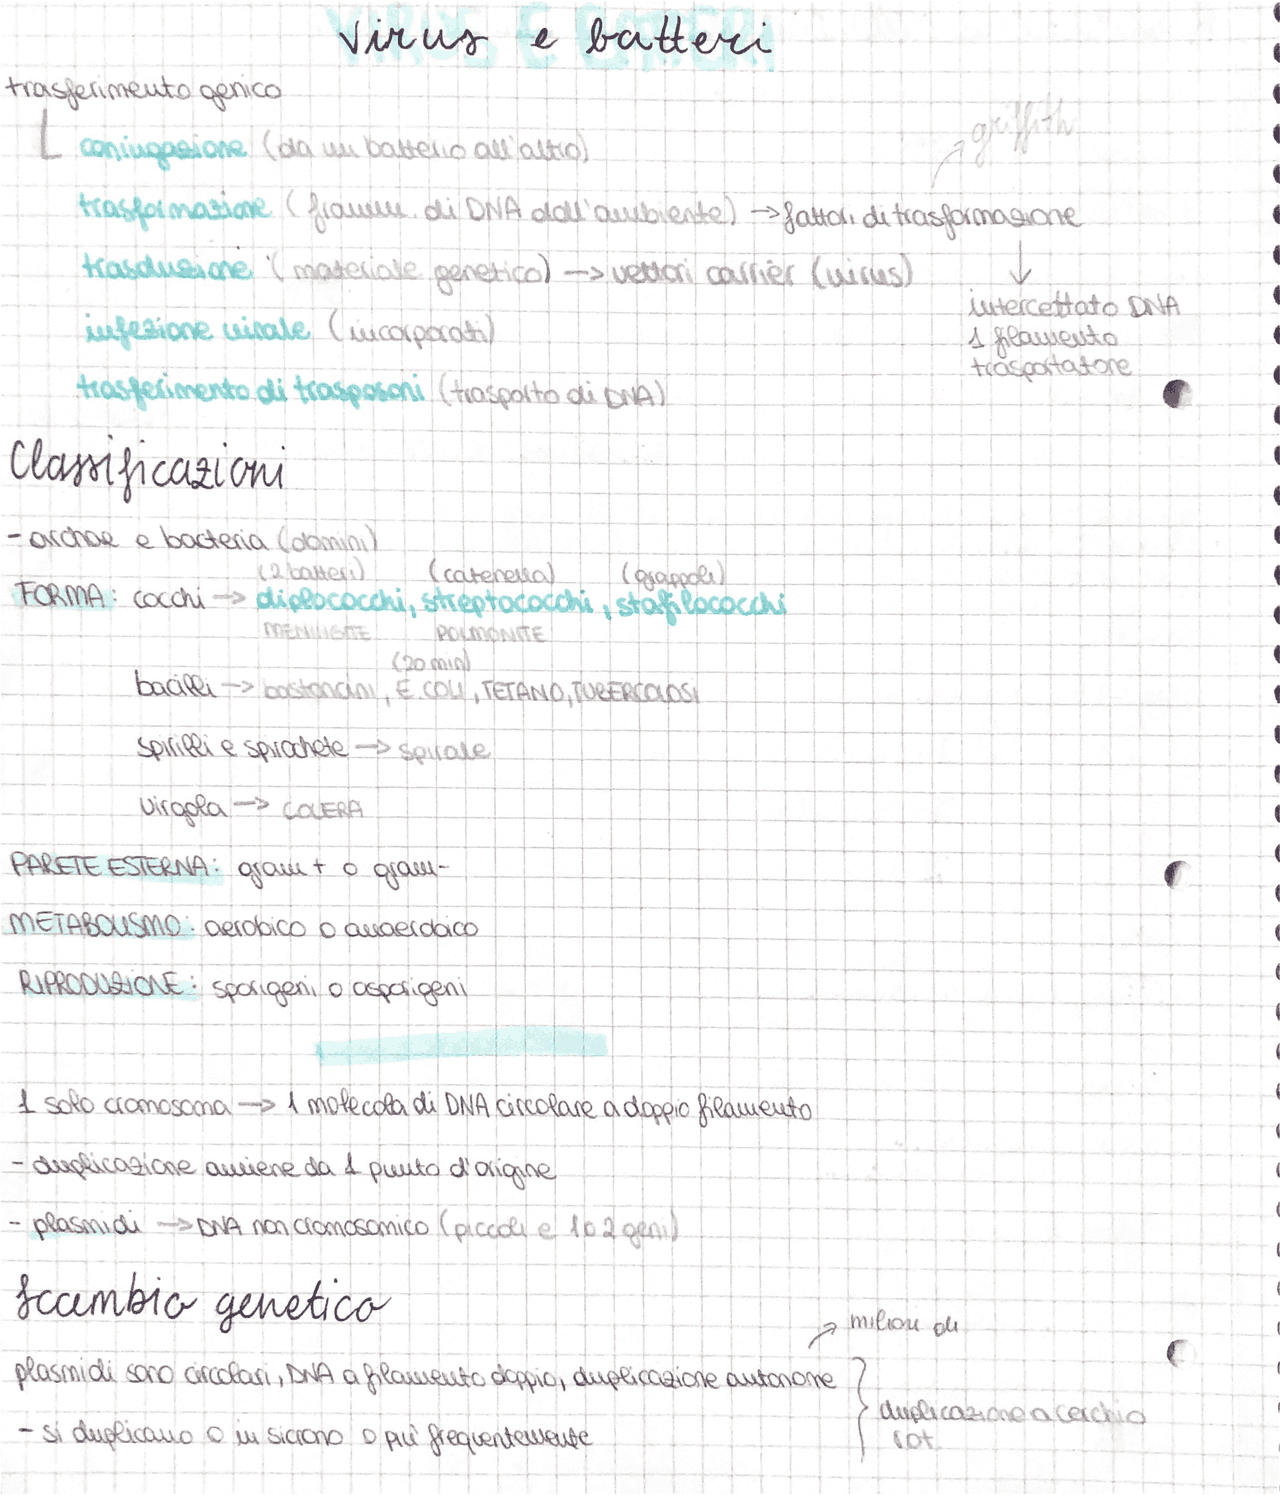 virus e batteri
trasferimento genico
griffith
coniugazione (da un batterio all'altro)
trasformazione (framm. di DNA dall'ambiente) → fattori di trasformazione
trasduzione (materiale genetico) → vettori carrier (virus)
intercettato DNA
1 filamento
trasportatore
infezione virale (incorporati)
trasferimento di trasposoni (trasporto di DNA)
Classificazioni
- archae e bacteria (domini)
(2 batteri) (catenella) (grappoli)
FORMA: cocchi → diplococchi, streptococchi, stafilococchi
MENINGITE POLMONITE
(20 min)
bacilli → bastoncini, E. COLI, TETANO, TUBERCOLOSI
spirilli e spirochete → spirale
virgola → COLERA
PARETE ESTERNA: gram + o gram-
METABOLISMO: aerobico o anaerobico
RIPRODUZIONE: sporigeni o asporigeni
1 solo cromosoma → 1 molecola di DNA circolare a doppio filamento
- duplicazione avviene da 1 punto d'origine
- plasmidi → DNA non cromosomico (piccoli e 1 o 2 geni)
Scambio genetico
milioni di
plasmidi sono circolari, DNA a filamento doppio, duplicazione autonome
duplicazione a cerchio
rot.
- si duplicano o in sicrono o più frequentemente